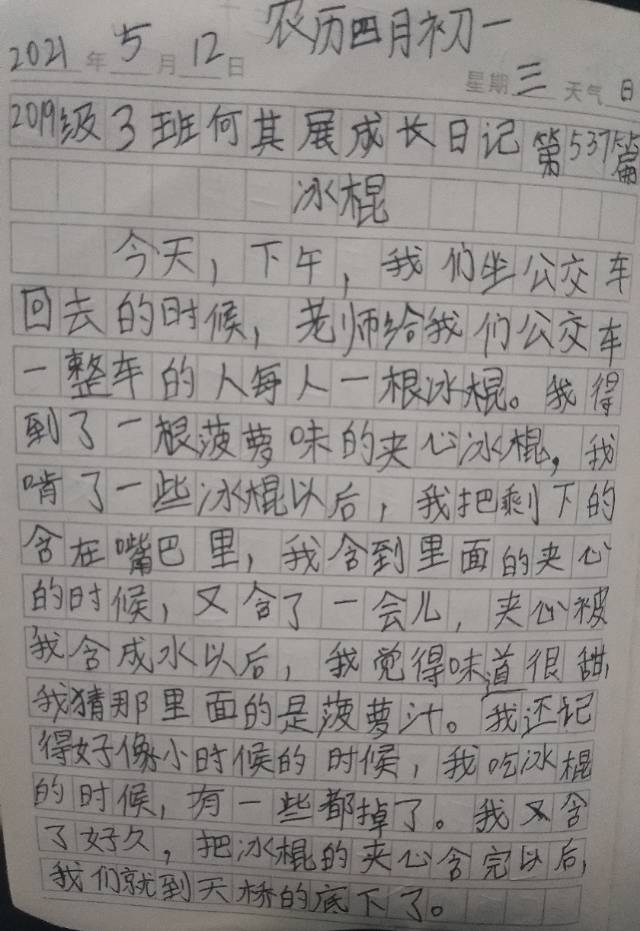 农历四月初一
2021年5月12日 星期三 天气日
2019级3班何其展成长日记第537篇
冰棍
今天，下午，我们坐公交车
回去的时候，老师给我们公交车
一整车的人每人一根冰棍。我得
到了一根菠萝味的夹心冰棍，我
啃了一些冰棍以后，我把剩下的
含在嘴巴里，我含到里面的夹心
的时候，又含了一会儿，夹心被
我含成水以后，我觉得味道很甜，
我猜那里面的是菠萝汁。我还记
得好像小时候的时候，我吃冰棍
的时候，有一些都掉了。我又含
了好久，把冰棍的夹心含完以后，
我们就到天桥的底下了。